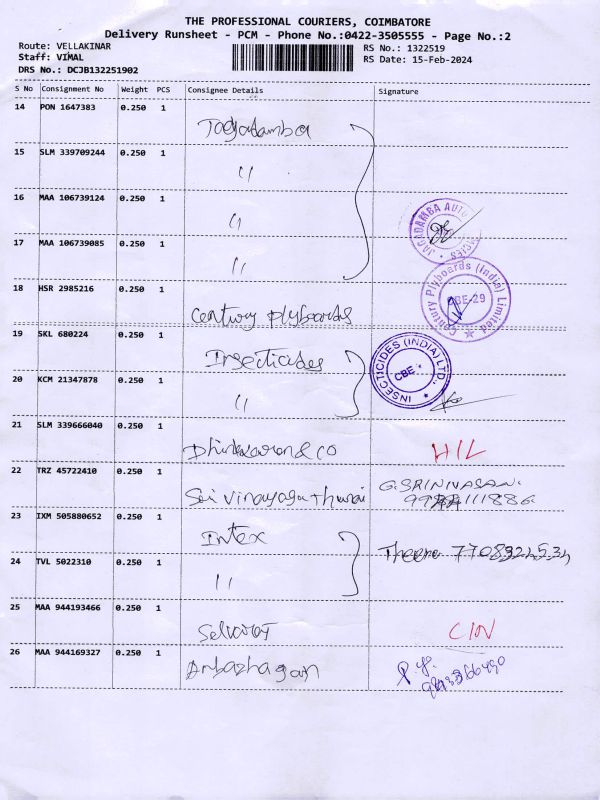 THE PROFESSIONAL COURIERS, COIMBATORE
Delivery Runsheet - PCM - Phone No.:0422-3505555 - Page No.:2
Route: VELLAKINAR
RS No.: 1322519
Staff: VIMAL
RS Date: 15-Feb-2024
DRS No.: DCJB132251902
S No Consignment No Weight PCS Consignee Details Signature
14 PON 1647383 0.250 1
Jagadamba
15 SLM 339709244 0.250 1
"
16 MAA 106739124 0.250 1
"
JAGADAMBA AUTO
17 MAA 106739085 0.250 1
"
18 HSR 2985216 0.250 1
Century Plyboards
Century Plyboards (India) Limited
CBE-29
19 SKL 680224 0.250 1
Insecticides
INSECTICIDES (INDIA) LTD.
CBE
20 KCM 21347878 0.250 1
"
21 SLM 339666040 0.250 1
& co
HIL
22 TRZ 45722410 0.250 1
Sri Vinayaga
G. SRINIVASAN.
23 IXM 505880652 0.250 1
Intex
24 TVL 5022310 0.250 1
"
25 MAA 944193466 0.250 1
Selvaraj
26 MAA 944169327 0.250 1
Anbazhagan